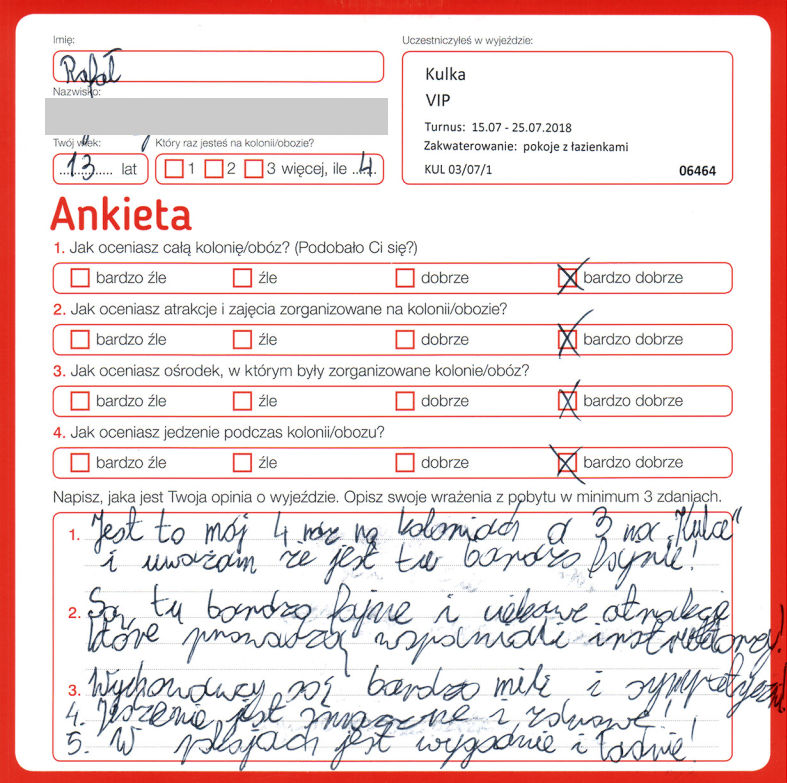 Imię:
Rafał
Nazwisko:
Twój wiek:
13 lat
Który raz jesteś na kolonii/obozie?
1 2 3 więcej, ile 4
Uczestniczyłeś w wyjeździe:
Kulka
VIP
Turnus: 15.07 - 25.07.2018
Zakwaterowanie: pokoje z łazienkami
KUL 03/07/1 06464
Ankieta
1. Jak oceniasz całą kolonię/obóz? (Podobało Ci się?)
bardzo źle źle dobrze bardzo dobrze
2. Jak oceniasz atrakcje i zajęcia zorganizowane na kolonii/obozie?
bardzo źle źle dobrze bardzo dobrze
3. Jak oceniasz ośrodek, w którym były zorganizowane kolonie/obóz?
bardzo źle źle dobrze bardzo dobrze
4. Jak oceniasz jedzenie podczas kolonii/obozu?
bardzo źle źle dobrze bardzo dobrze
Napisz, jaka jest Twoja opinia o wyjeździe. Opisz swoje wrażenia z pobytu w minimum 3 zdaniach.
1. Jest to mój 4 raz na koloniach a 3 na „Kulce"
i uważam że jest tu bardzo fajnie!
2. Są tu bardzo fajne i ciekawe atrakcje
które prowadzą wspaniali instruktorzy!
3. Wychowawcy są bardzo mili i sympatyczni!
4. Jedzenie jest smaczne i zdrowe!
5. W pokojach jest wygodnie i ładnie!